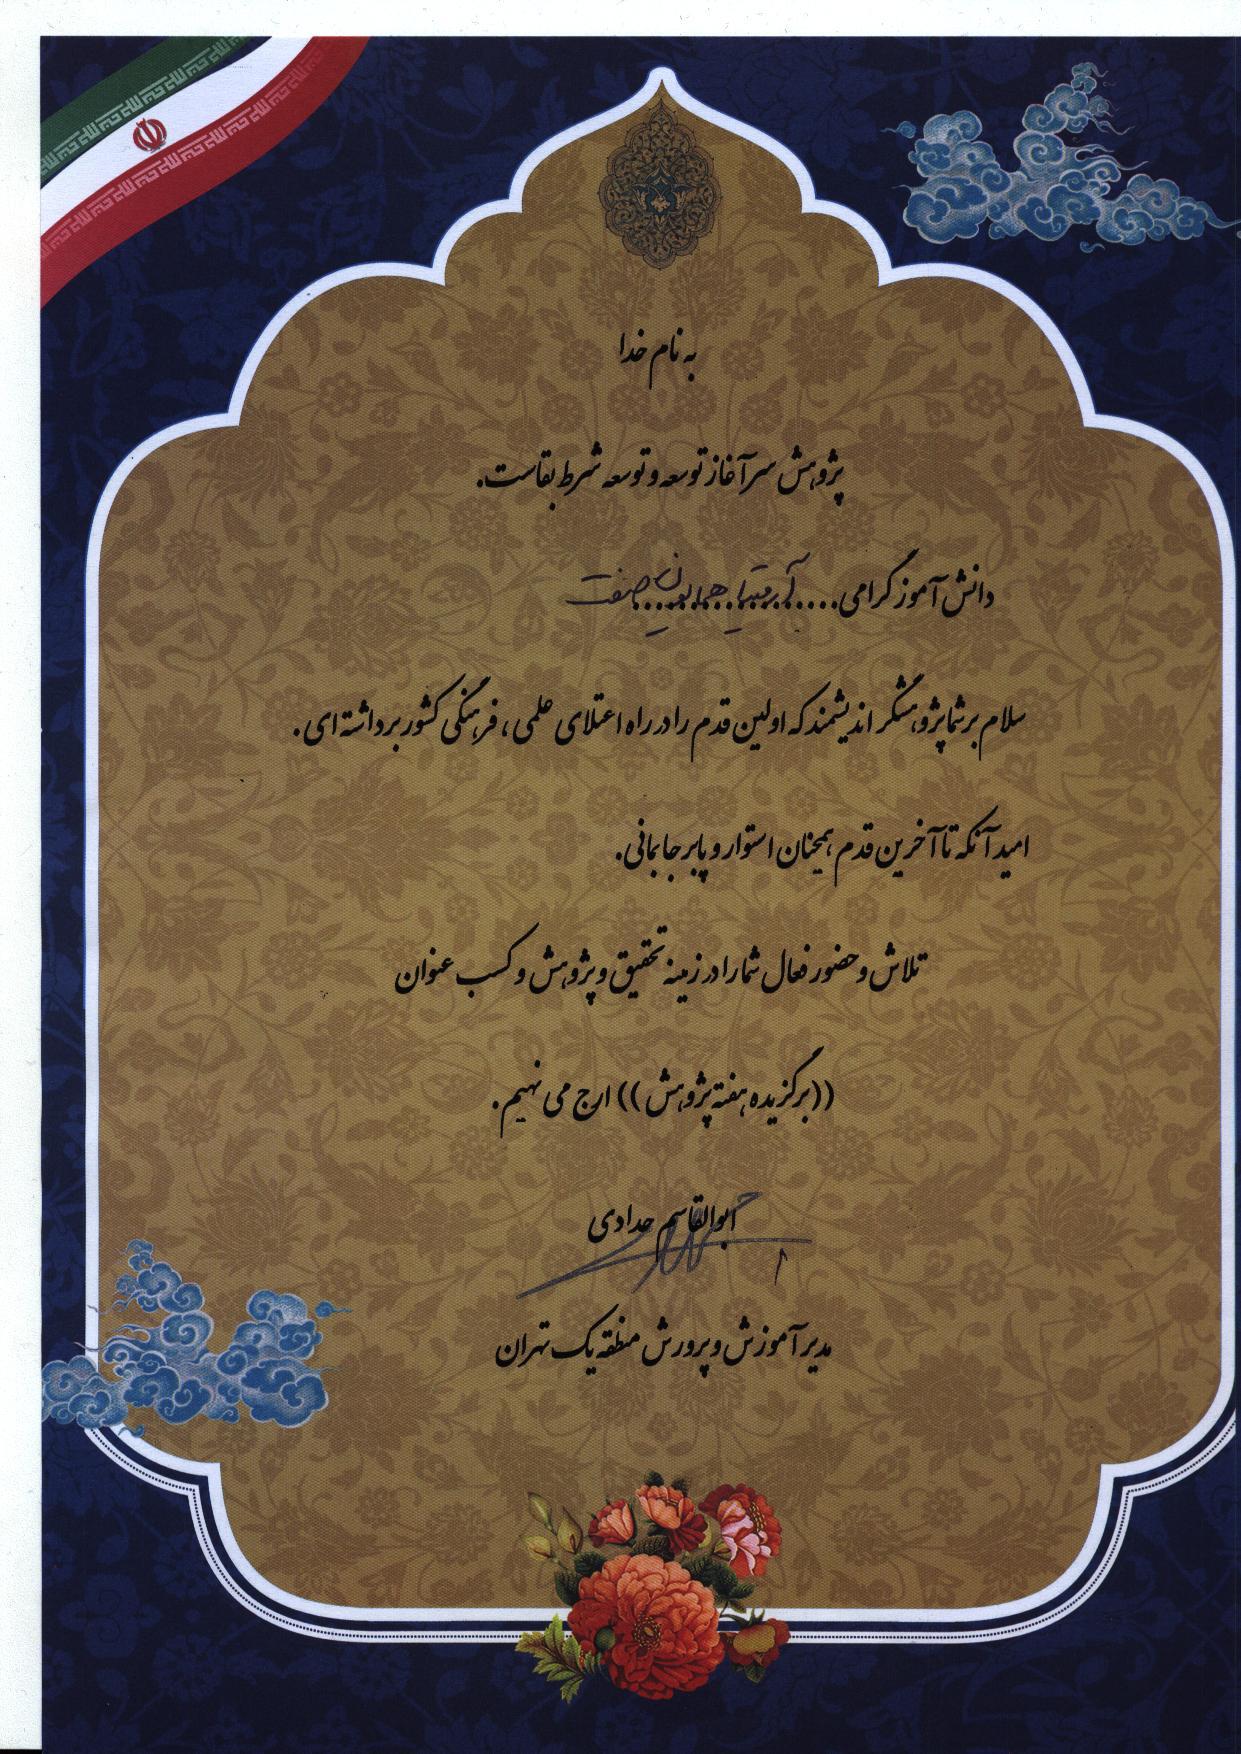 به نام خدا
پژوهش سرآغاز توسعه و توسعه شرط بقاست.
دانش آموز گرامی.... آرمیتا همایون صنعت
سلام بر شما پژوهشگر اندیشمند که اولین قدم را در راه اعتلای علمی، فرهنگی کشور برداشته ای.
امید آنکه تا آخرین قدم همچنان استوار و پابرجا بمانی.
تلاش و حضور فعال شما را در زمینه تحقیق و پژوهش و کسب عنوان
((برگزیده هفته پژوهش)) ارج می نهیم.
ابوالقاسم حدادی
مدیر آموزش و پرورش منطقه یک تهران